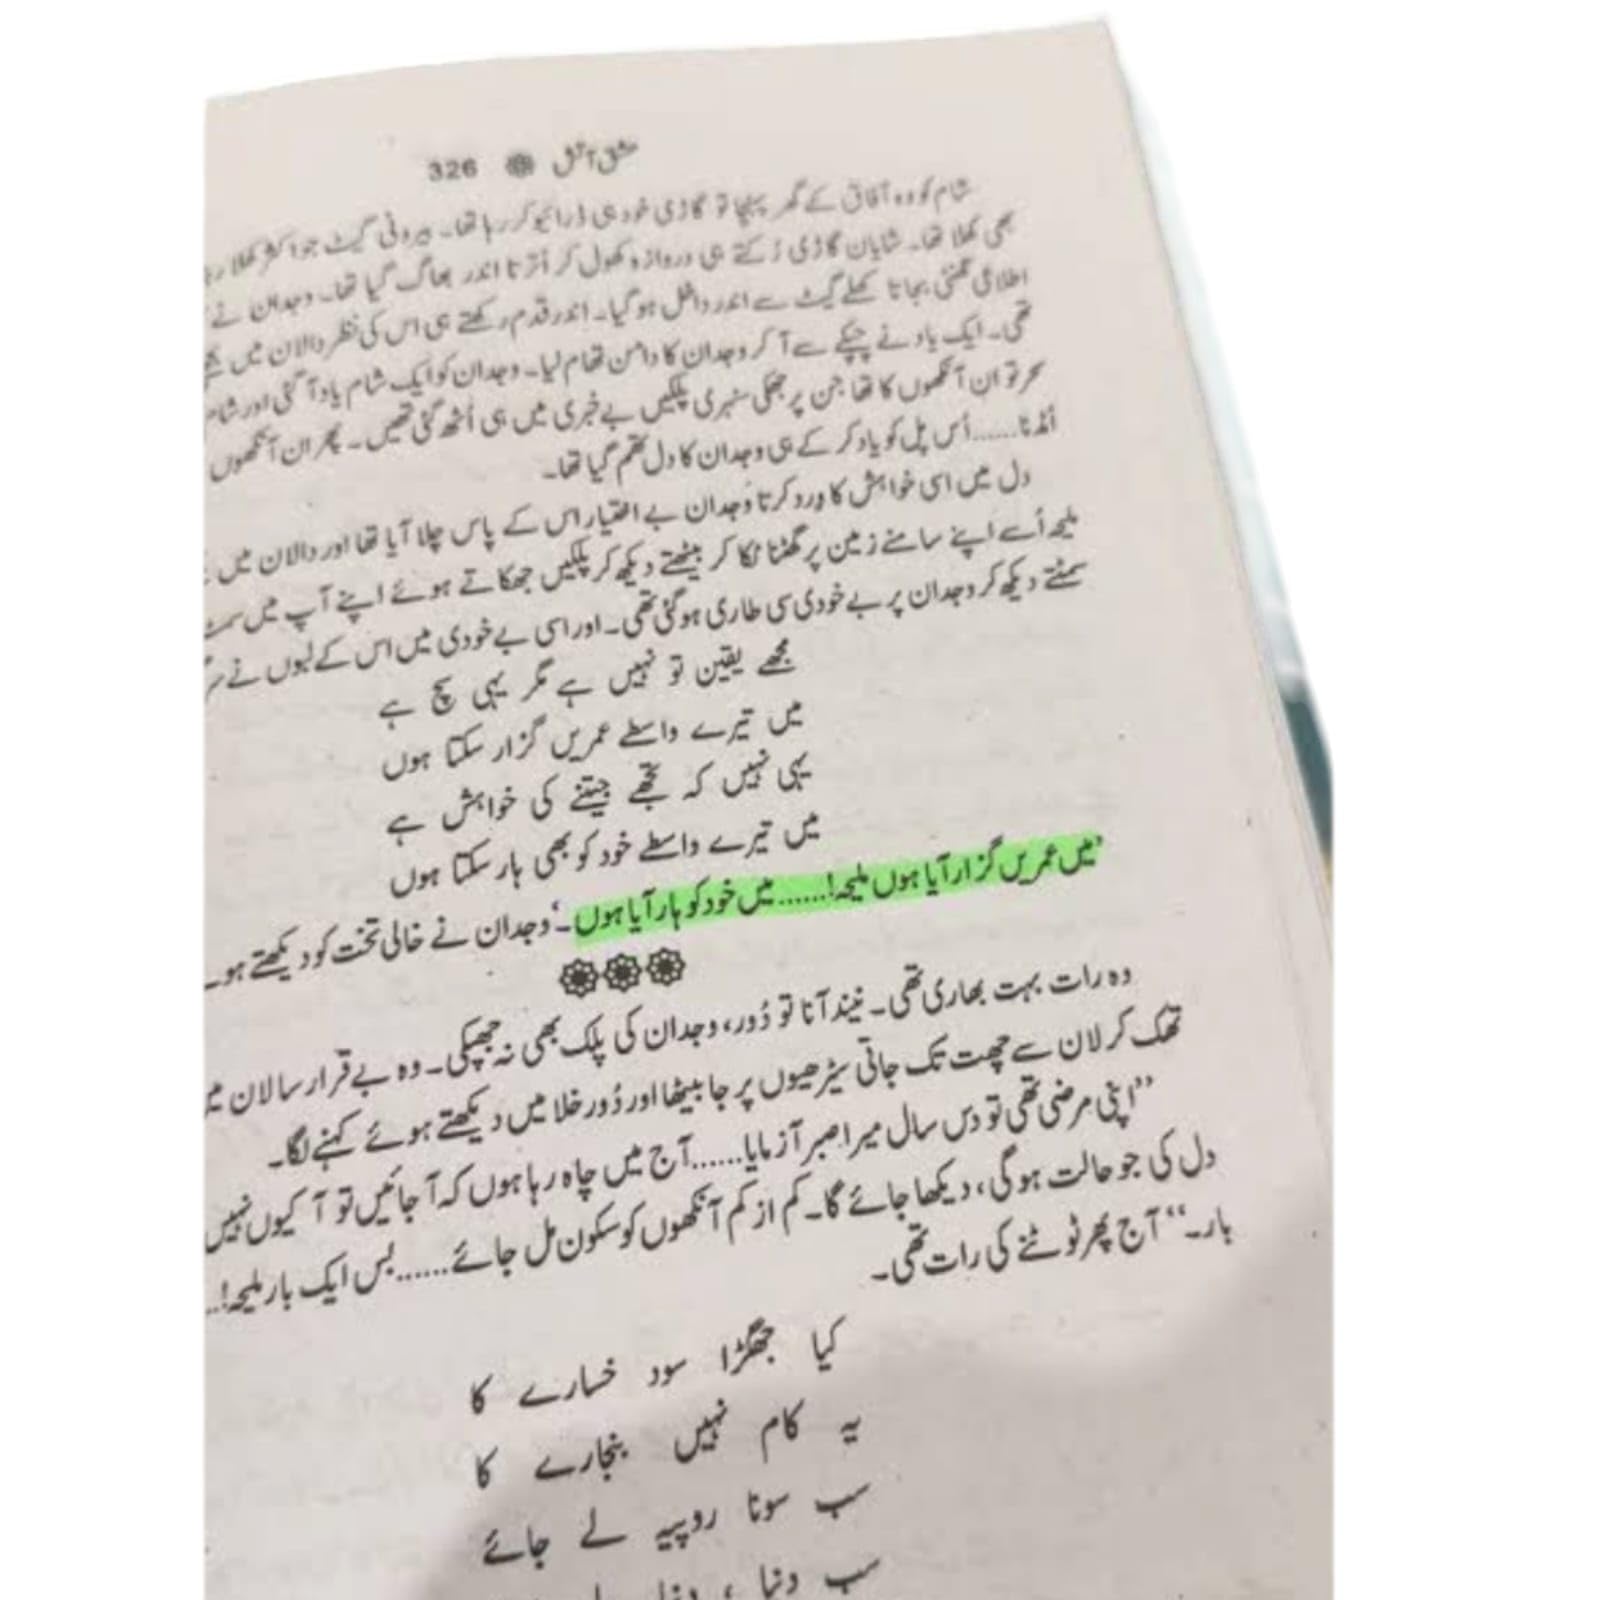 عشق آتش 326
شام کو وہ آفاق کے گھر پہنچا تو گاڑی خود ہی ڈرائیو کر رہا تھا۔ بیرونی گیٹ جو اکثر کھلا
بھی کھلا تھا۔ شایان گاڑی رُکتے ہی دروازہ کھول کر اُترتا اندر بھاگ گیا تھا۔ وجدان نے
اطلاعی گھنٹی بجاتا کھلے گیٹ سے اندر داخل ہو گیا۔ اندر قدم رکھتے ہی اس کی نظر دالان میں
تھی۔ ایک یاد نے چپکے سے آ کر وجدان کا دامن تھام لیا۔ وجدان کو ایک شام یاد آ گئی اور
سحر تو ان آنکھوں کا تھا جن پر جھکی سنہری پلکیں بے خبری میں ہی اُٹھ گئی تھیں۔ پھر ان آنکھوں
اُلڈنا......اُس پل کو یاد کر کے ہی وجدان کا دل تھم گیا تھا۔
دل میں اسی خواہش کا وِرد کرتا وجدان بے اختیار اس کے پاس چلا آیا تھا اور دالان میں
ملیحہ اُسے اپنے سامنے زمین پر گھٹنا ٹکا کر بیٹھتے دیکھ کر پلکیں جھکاتے ہوئے اپنے آپ میں
سمٹتے دیکھ کر وجدان پر بے خودی سی طاری ہو گئی تھی۔ اور اسی بے خودی میں اس کے لبوں نے
مجھے یقین تو نہیں ہے مگر یہی سچ ہے
میں تیرے واسطے عمریں گزار سکتا ہوں
یہی نہیں کہ تجھے جیتنے کی خواہش ہے
میں تیرے واسطے خود کو بھی ہار سکتا ہوں
’میں عمریں گزار آیا ہوں ملیحہ!......میں خود کو ہار آیا ہوں۔‘ وجدان نے خالی تخت کو دیکھتے
وہ رات بہت بھاری تھی۔ نیند آنا تو دُور، وجدان کی پلک بھی نہ جھپکی۔ وہ بے قرار سا لان
تھک کر لان سے چھت تک جاتی سیڑھیوں پر جا بیٹھا اور دُور خلا میں دیکھتے ہوئے کہنے لگا۔
’’اپنی مرضی تھی تو دس سال میرا صبر آزمایا......آج میں چاہ رہا ہوں کہ آ جائیں تو آ کیوں نہیں
دل کی جو حالت ہو گی، دیکھا جائے گا۔ کم از کم آنکھوں کو سکون مل جائے......بس ایک بار ملیحہ!..
بار۔‘‘ آج پھر ٹوٹنے کی رات تھی۔
کیا جھگڑا سود خسارے کا
یہ کام نہیں بنجارے کا
سب سونا روپیہ لے جائے
سب دنیا،